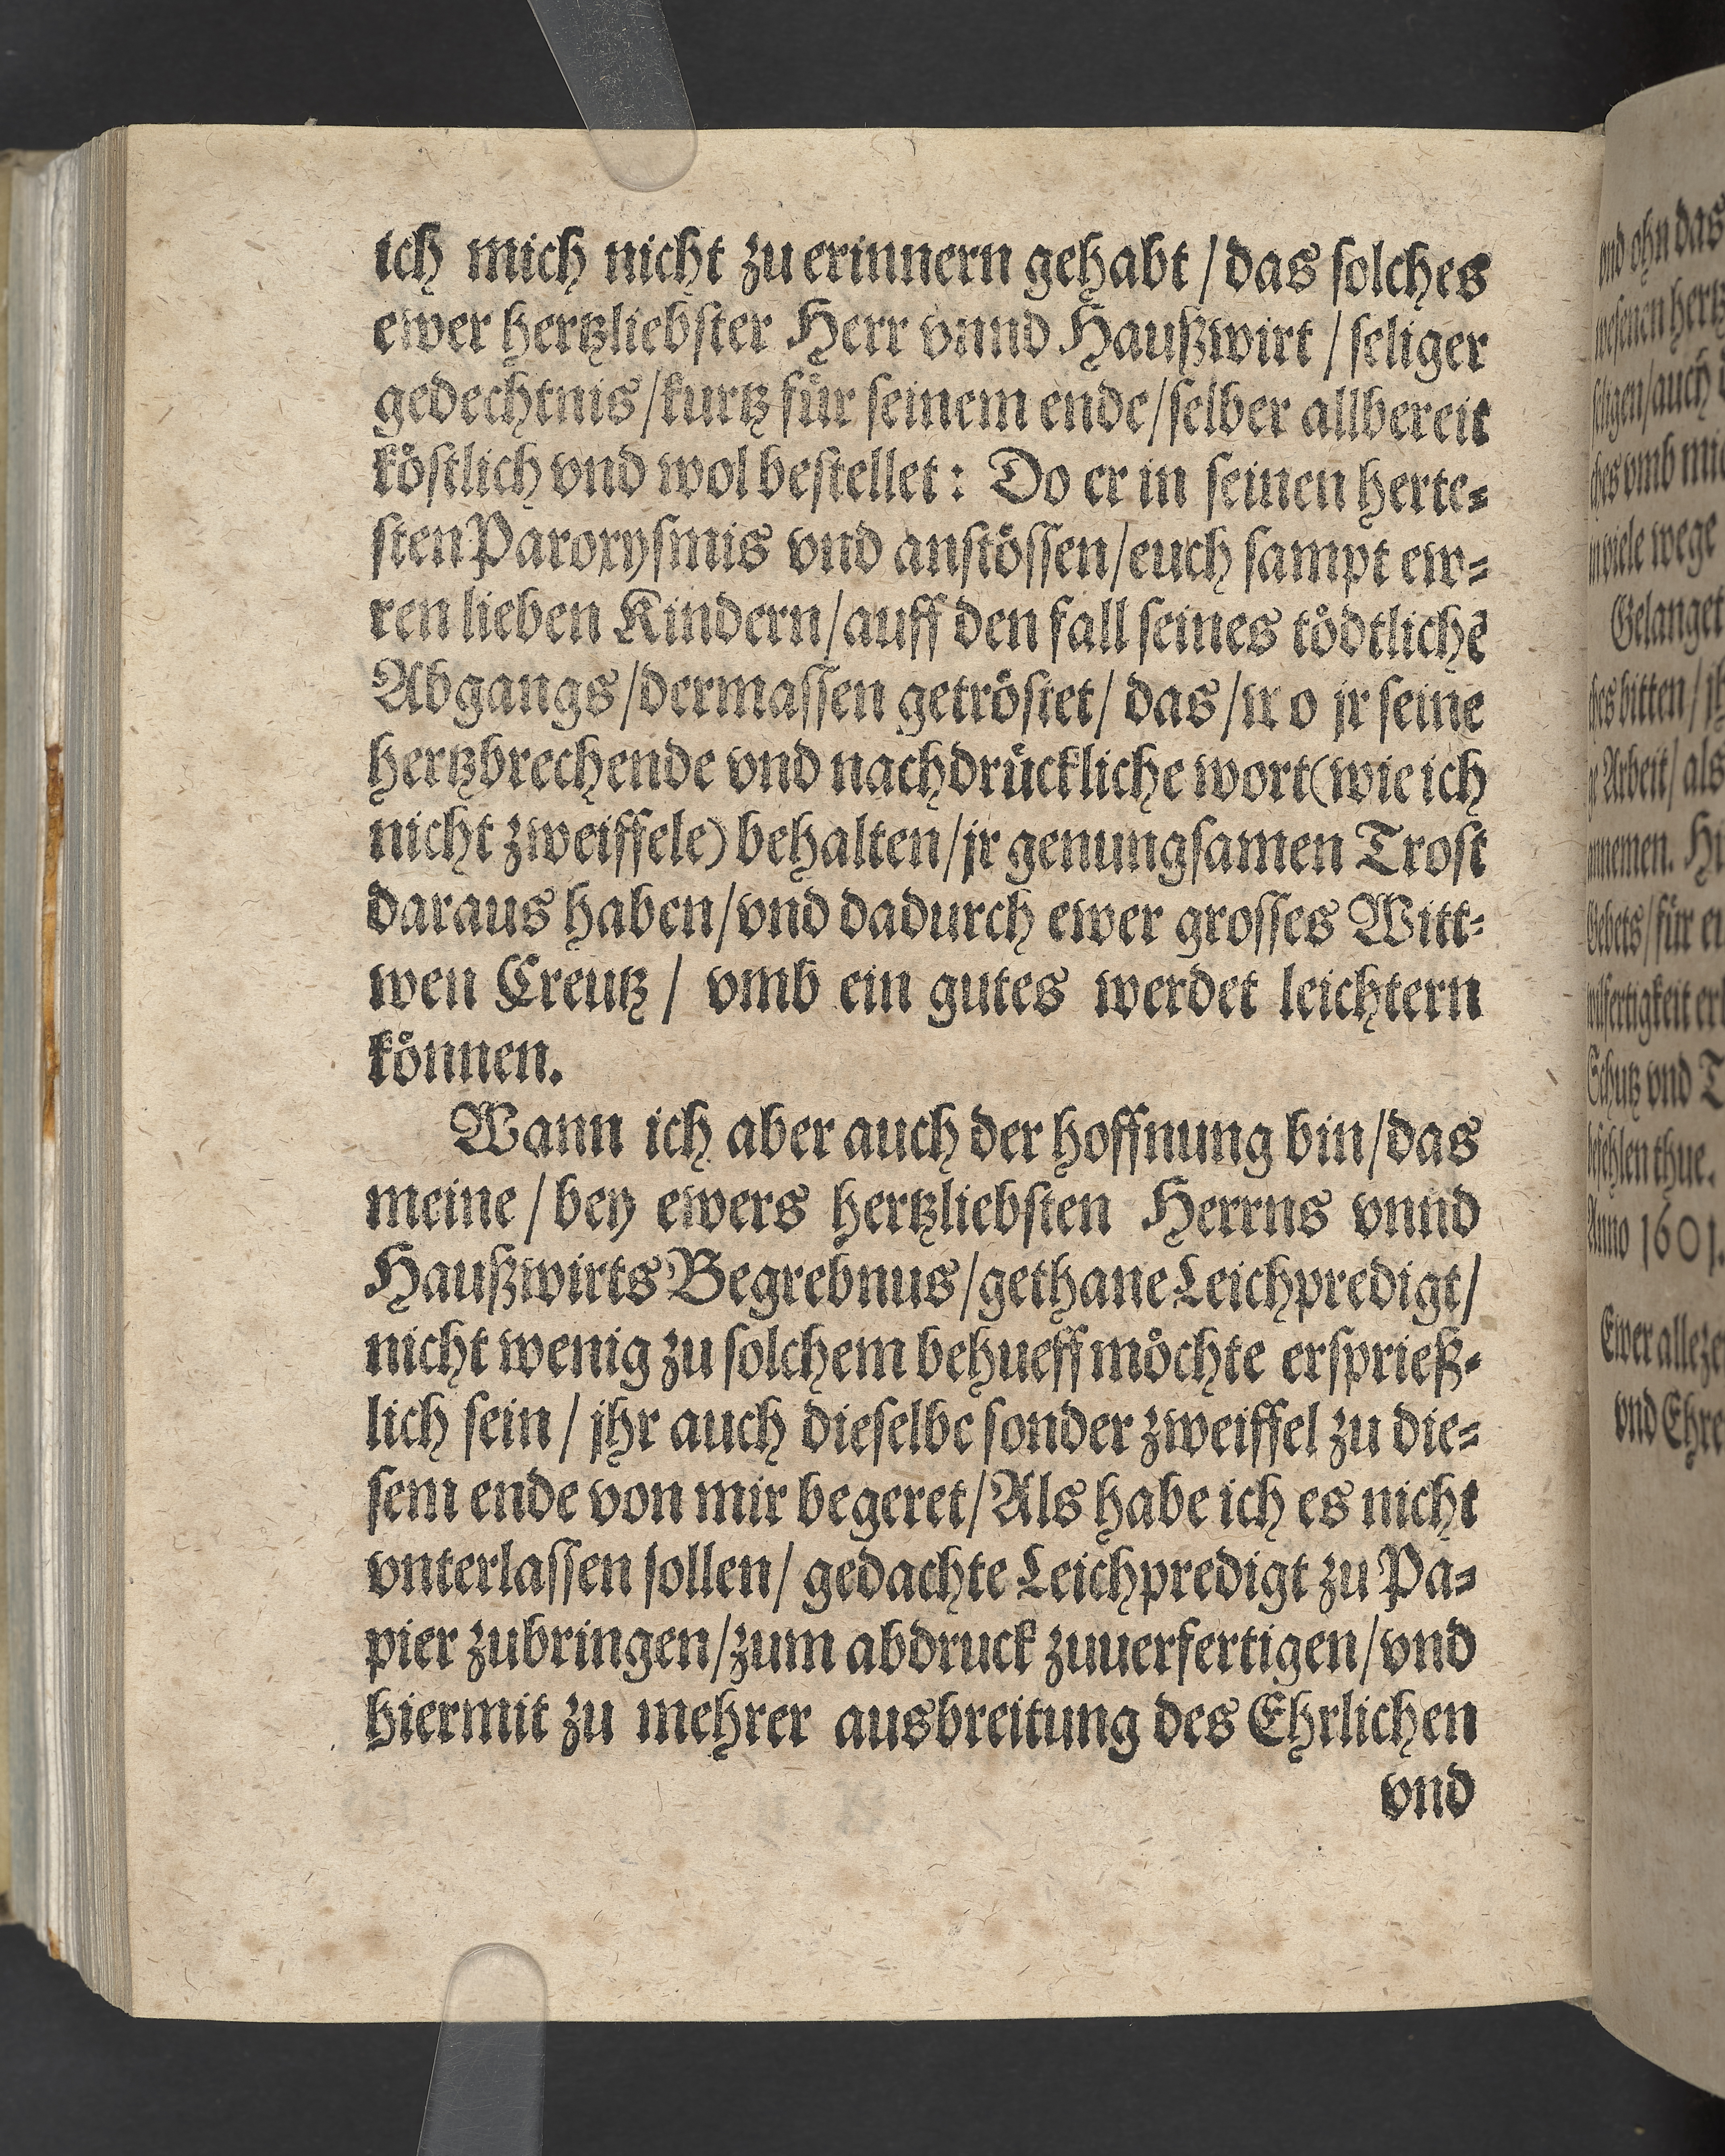 ich mich nicht zu erinnern gehabt / das solches
ewer hertzliebster Herr vnnd Haußwirt / seliger
gedechtnis / kurtz fuͤr seinem ende / selber allbereit
koͤstlich vnd wol bestellet: Do er in seinen herte⸗
sten Paroxysmis vnd anstoͤssen / euch sampt ew⸗
ren lieben Kindern / auff den fall seines toͤdtlichẽ
Abgangs / dermassen getroͤstet / das / wo jr seine
hertzbrechende vnd nachdruͤckliche wort (wie ich
nicht zweiffele) behalten / jr genungsamen Trost
daraus haben / vnd dadurch ewer grosses Witt⸗
wen Creutz / vmb ein gutes werdet leichtern
koͤnnen.
Wann ich aber auch der hoffnung bin / das
meine / bey ewers hertzliebsten Herrns vnnd
Haußwirts Begrebnus / gethane Leichpredigt /
nicht wenig zu solchem behueff moͤchte ersprieß⸗
lich sein / jhr auch dieselbe sonder zweiffel zu die⸗
sem ende von mir begeret / Als habe ich es nicht
vnterlassen sollen / gedachte Leichpredigt zu Pa⸗
pier zubringen / zum abdruck zuuerfertigen / vnd
hiermit zu mehrer ausbreitung des Ehrlichen
vnd
vnd ohn das
hertz
seligen / auch
vmb
viele wege
Gelanget
bitten /
Arbeit / als
Gebets / fuͤr
Schutz vnd
befehlen thue.
Anno 1601.
Ewer alleze
vnd Ehre